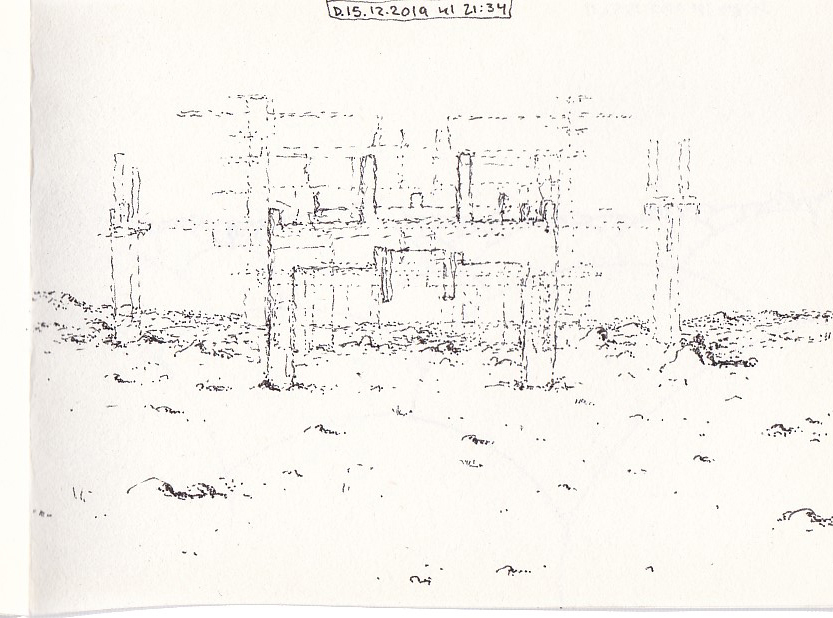 D.15.12.2019 kl 21:34